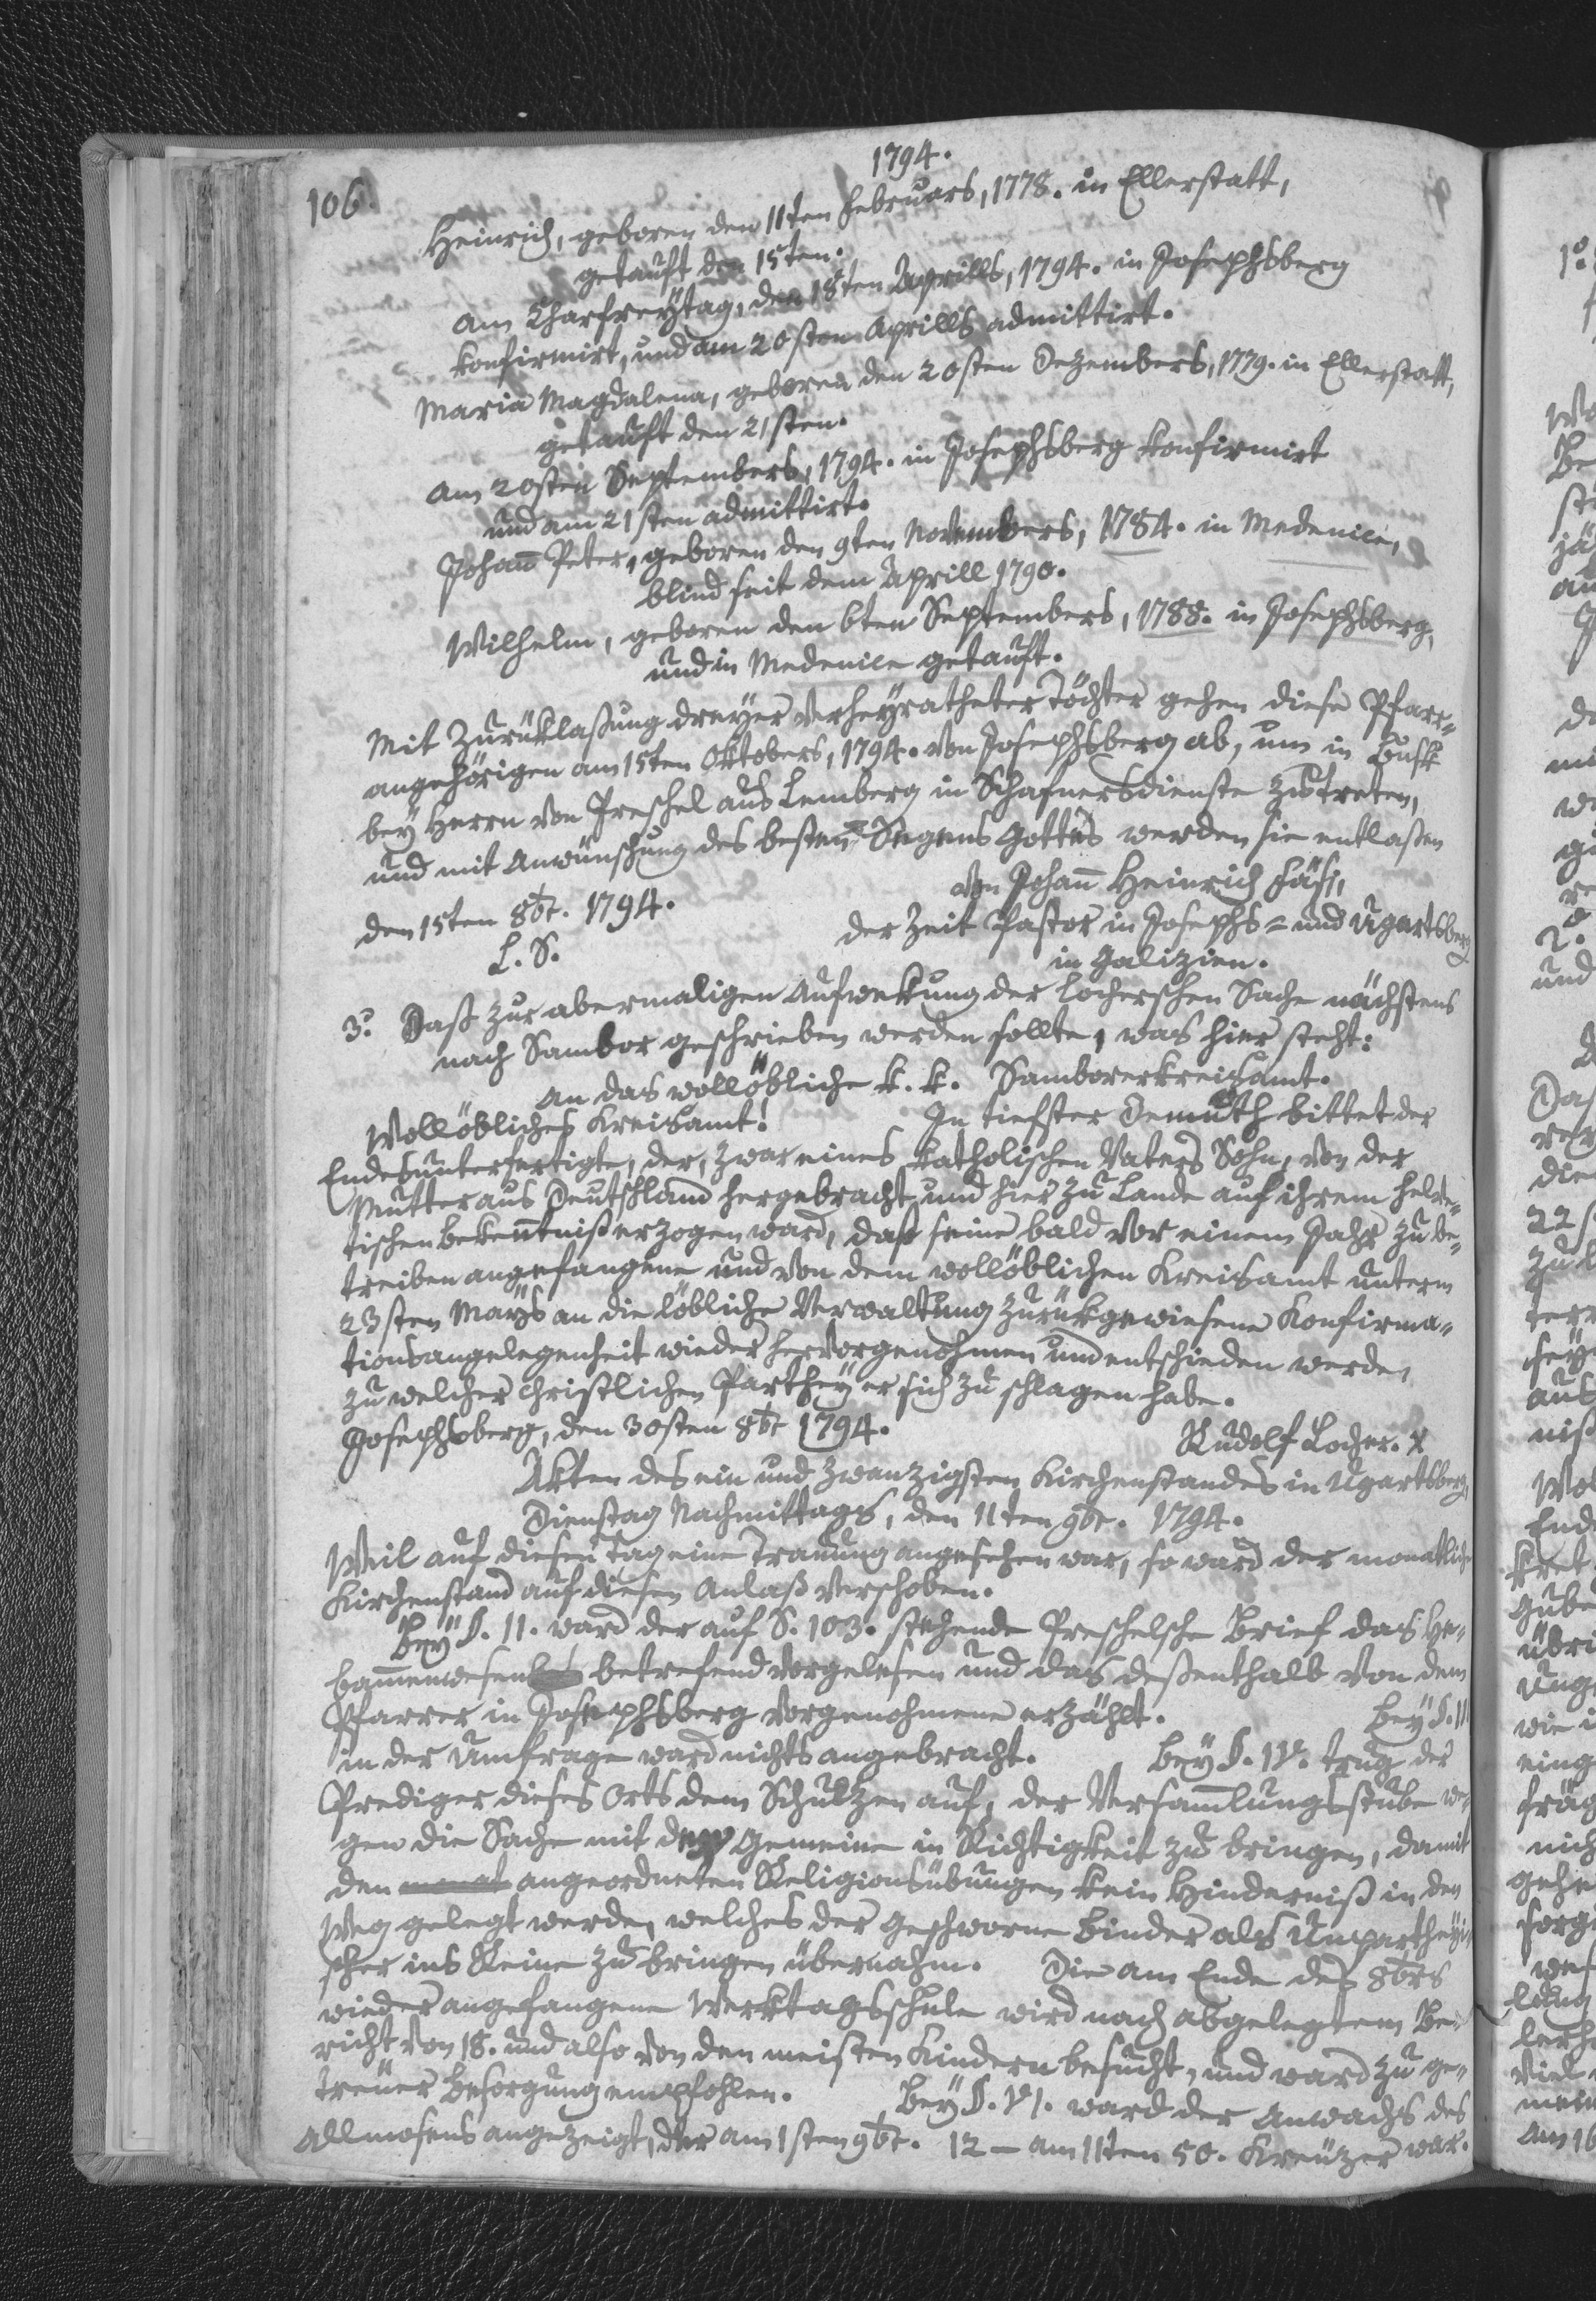 106.
1794.
Heinrich, geboren den 11ten Februars, 1778. in Ellerstatt,
getauft den 15ten.
Am Charfreytag, den 18ten Aprills, 1794. in Josephsberg
konfirmirt, und am 20sten Aprills admittirt.
Maria Magdalena, geboren den 20sten Dezembers, 1779. in Ellerstatt,
getauft den 21sten.
Am 20sten Septembers, 1794. in Josephsberg konfirmirt
und am 21sten admittirt.
Johann Peter, geboren den 9ten Novembers, 1784. in Medenice,
blind seit dem Aprill 1790.
Wilhelm, geboren den 6ten Septembers, 1788. in Josephsberg,
und in Medenice getauft.
Mit Zurüklaßung dreyer verheyratheter Töchter gehen diese Pfarr-
angehörigen am 15ten Oktobers, 1794. von Josephsberg ab, um in Busk
bey Herrn von Preschel aus Lemberg in Schafnersdienste zu treten,
und mit Anwünschung des besten Segens Gottes werden sie entlaßen
den 15ten 8br. 1794.
von Johann Heinrich Fäsi,
L. S.
der Zeit Pastor in Josephs- und Ugartsberg
in Galizien.
3°. Daß zur abermaligen Aufwekung der Locherschen Sache nächstens
nach Sambor geschrieben werden sollte, was hier steht:
An das wollöbliche k. k. Samborerkreisamt.
Wollöbliches Kreisamt! In tiefster Demuth bittet der
Endesunterfertigte, der, zwar eines katholischen Vaters Sohn, von der
Mutter aus Deutschland hergebracht und hier zu Lande auf ihrem helve-
tischen Bekenntniß erzogen ward, daß seine bald vor einem Jahr zu be-
treiben angefangene und von dem wollöblichen Kreisamt unterm
23sten Mays an die löbliche Verwaltung zurükgewiesene Konfirma-
tionsangelegenheit wieder hervorgenohmen und entschieden werde,
zu welcher christlichen Parthey er sich zu schlagen habe.
Josephsberg, den 30sten 8br 1794.
Rudolf Locher. X
Akten des ein und zwanzigsten Kirchenstandes in Ugartsberg,
Dienstag Nachmittags, den 11ten 9br. 1794.
Weil auf diesen Tag eine Trauung angesehen war, so ward der monatliche
Kirchenstand auf diesen Anlaß verschoben.
Bey §. 11. ward der auf S. 103. stehende Preschelsche Brief das He-
bammenwesen betrefend vorgelesen und das deßenthalb von dem
Pfarrer in Josephsberg vorgenohmene erzählt. Bey §. 111
in der Umfrage ward nichts angebracht. Bey §. 1V. trug der
Prediger dieses Orts dem Schultzen auf, der Versammlungsstube we-
gen die Sache mit der Gemeine in Richtigkeit zu bringen, damit
den angeordneten Religionsübungen kein Hinderniß in den
Weg gelegt werde, welches der Geschworne Binder als Unpartheyi-
scher ins Reine zu bringen übernahm. Die am Ende des 8brs
wieder angefangene Werktagsschule wird nach abgelegtem Be-
richt von 18. und also von den meisten Kindern besucht, und ward zu ge-
treuer Besorgung empfohlen. Bey §. V1. ward der Anwachs des
Allmosens angezeigt, der am 1sten 9br. 12 – am 11ten 50. Kreuzer war.